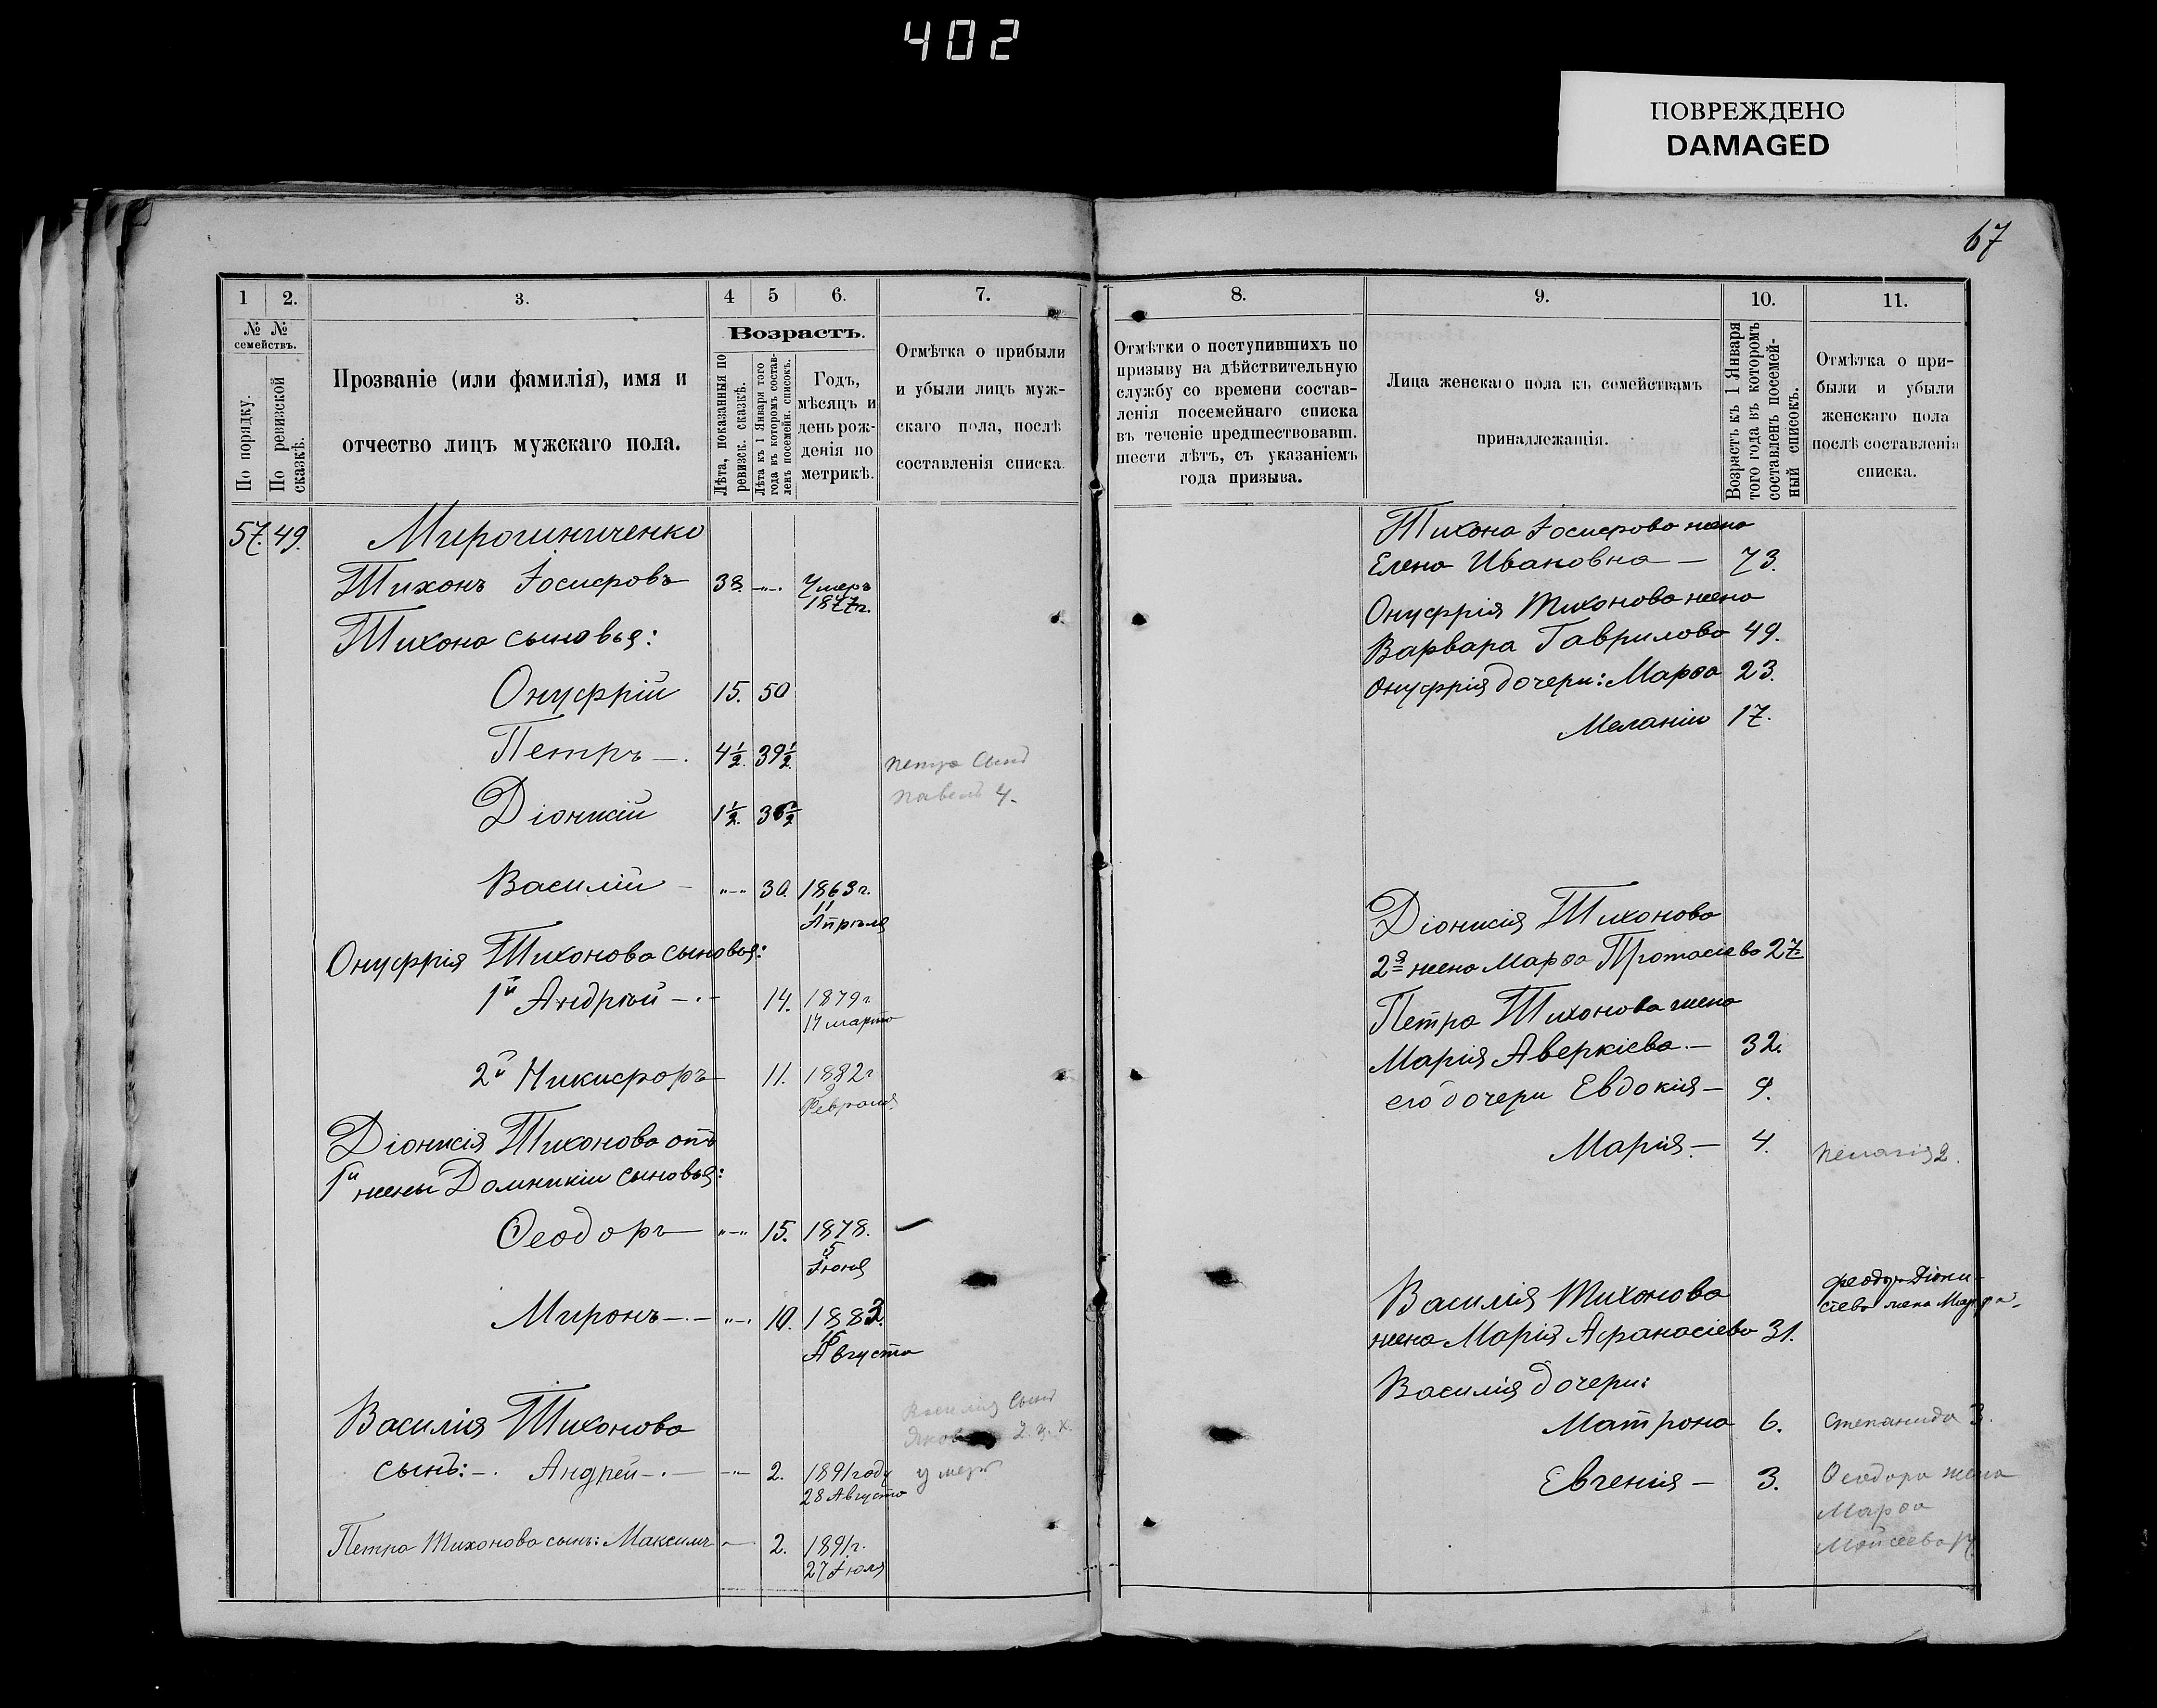 402
ПОВРЕЖДЕНО
DAMAGED
67
1
2.
3.
4
5
6.
7.
№ №
семействъ.
По порядку.
По ревизской
сказкѣ.
Прозваніе (или фамилія), имя и
отчество лицъ мужскаго пола.
Возрастъ.
Лѣта, показанныя по
ревизск. сказкѣ.
Лѣта къ 1 Января того
года въ которомъ состав-
ленъ посемейн. списокъ.
Годъ,
мѣсяцъ и
день рож-
денія по
метрикѣ.
Отмѣтка о прибыли
и убыли лицъ муж-
скаго пола, послѣ
составленія списка.
57. 49. Мирошниченко
Тихонъ Іосифовъ 38. -„-. Умеръ
1877г.
Тихона сыновья:
Онуфрій 15. 50
Петръ —. 4½. 39½.
Петра Сынъ
Павелъ 4.
Діонисій 1½. 36½
Василій - „-„ 30. 1863г.
11
Апрѣля
Онуфрія Тихонова сыновья:
1й Андрѣй -.- 14. 1879г
14 марта
2й Никифоръ 11. 1882г
3
Февраля.
Діонисія Тихонова отъ
1й жены Домникіи сыновья:
Ѳеодоръ „-„ 15. 1878.
5
Іюня
Миронъ -.- „-. 10. 1883.
16
Августа
Василія Сынъ
Василія Тихонова
сынъ: -. Андрей -.- -„- 2. 1891году умеръ
28 Августа
Петра Тихонова сынъ: Максимъ - 2. 1891г.
27 Іюля
8.
9.
10.
11.
Отмѣтки о поступившихъ по
призыву на дѣйствительную
службу со времени состав-
ленія посемейнаго списка
въ теченіе предшествовавш.
шести лѣтъ, съ указаніемъ
года призыва.
Лица женскаго пола къ семействамъ
принадлежащія.
Возрастъ къ 1 Января
того года въ которомъ
составленъ посемей-
ный списокъ.
Отмѣтка о при-
были и убыли
женскаго пола
послѣ составленія
списка.
Тихона Іосифова жена
Елена Ивановна — 73.
Онуфрія Тихонова жена
Варвара Гаврилова 49.
Онуфрія дочери: Марѳа 23.
Меланія 17.
Діонисія Тихонова
2я жена Марѳа Протасіева 27.
Петра Тихонова жена
Марія Аверкіева.— 32.
его дочери Евдокія — 9.
Марія.— 4. Пелагія 2.
Феодор Діони-
сіева жена Марфа.
Василія Тихонова
жена Марія Афанасіева 31.
Василія дочери:
Матрона 6. Степанида 3.
Евгенія — 3. Ѳеодора жена
Марѳа
Мойсеева